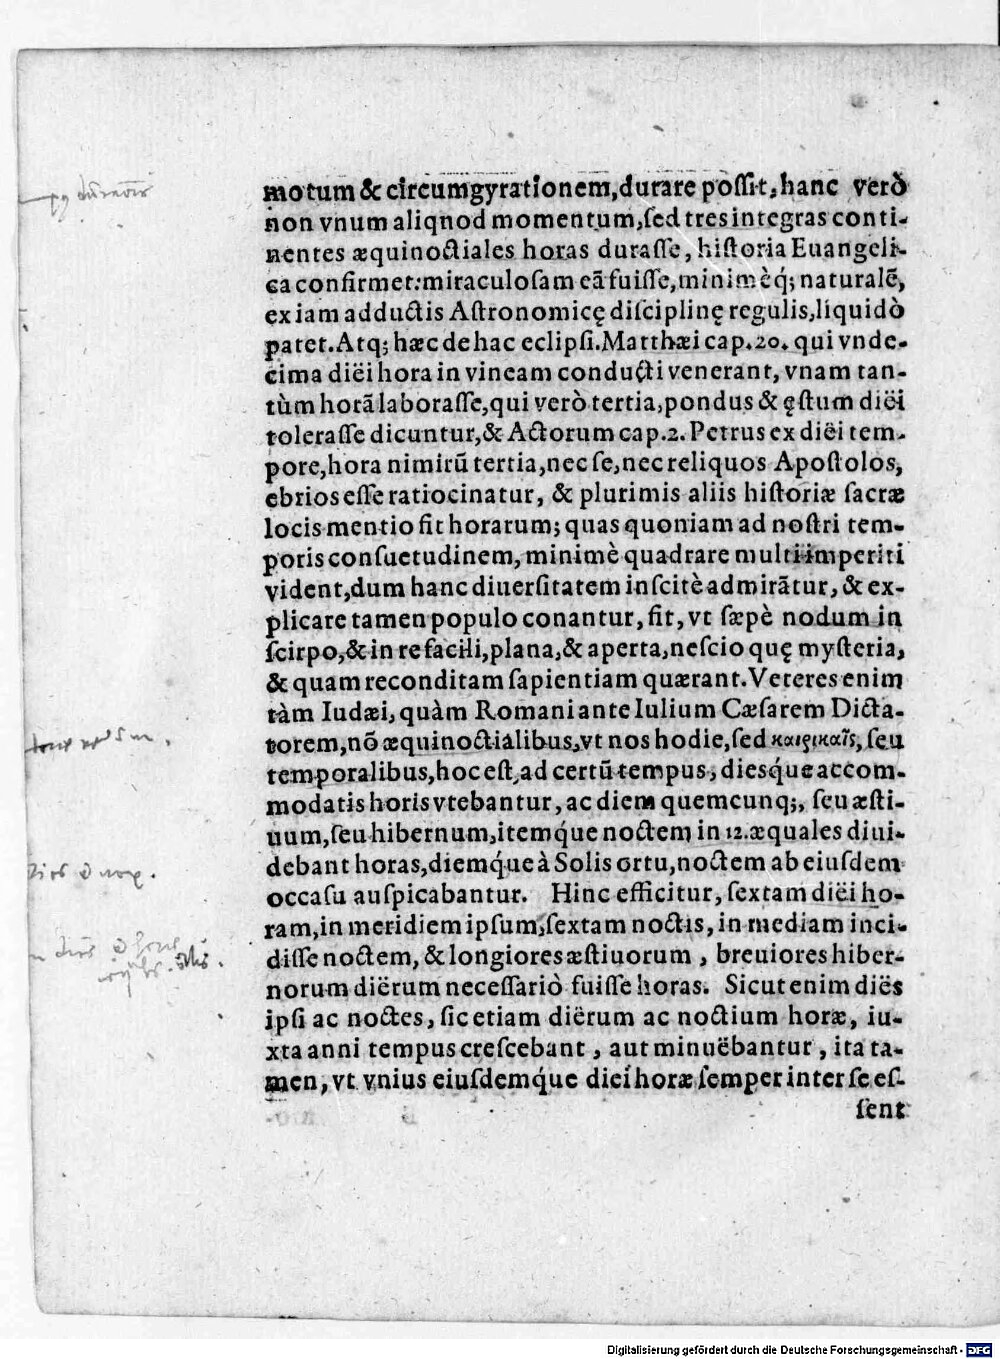 motum & circumgyrationem, durare possit, hanc verò
non vnum aliqnod momentum, sed tres integras conti-
nentes æquinoctiales horas durasse, historia Euangeli-
ca confirmet: miraculosam eã fuisse, minimèq́; naturalẽ,
ex iam adductis Astronomicę disciplinę regulis, liquidò
patet. Atq; hæc de hac eclipsi. Matthæi cap. 20. qui vnde-
cima diëi hora in vineam conducti venerant, vnam tan-
tùm horã laborasse, qui verò tertia, pondus & ęstum diëi
tolerasse dicuntur, & Actorum cap. 2. Petrus ex diëi tem-
pore, hora nimirũ tertia, nec se, nec reliquos Apostolos,
ebrios esse ratiocinatur, & plurimis aliis historiæ sacræ
locis mentio fit horarum; quas quoniam ad nostri tem-
poris consuetudinem, minimè quadrare multi imperiti
vident, dum hanc diuersitatem inscitè admirãtur, & ex-
plicare tamen populo conantur, fit, vt sæpè nodum in
scirpo, & in re facili, plana, & aperta, nescio quę mysteria,
& quam reconditam sapientiam quærant. Veteres enim
tàm Iudæi, quàm Romani ante Iulium Cæsarem Dicta-
torem, nõ æquinoctialibus, vt nos hodie, sed καιρικαῖς, seu
temporalibus, hoc est, ad certũ tempus, diesq́ue accom-
modatis horis vtebantur, ac diem quemcunq;, seu æsti-
uum, seu hibernum, itemq́ue noctem in 12. æquales diui-
debant horas, diemq́ue à Solis ortu, noctem ab eiusdem
occasu auspicabantur. Hinc efficitur, sextam diëi ho-
ram, in meridiem ipsum, sextam noctis, in mediam inci-
disse noctem, & longiores æstiuorum, breuiores hiber-
norum diërum necessariò fuisse horas. Sicut enim diës
ipsi ac noctes, sic etiam diërum ac noctium horæ, iu-
xta anni tempus crescebant, aut minuëbantur, ita ta-
men, vt vnius eiusdemq́ue diei horæ semper inter se es-
sent
Digitalisierung gefördert durch die Deutsche Forschungsgemeinschaft - DFG